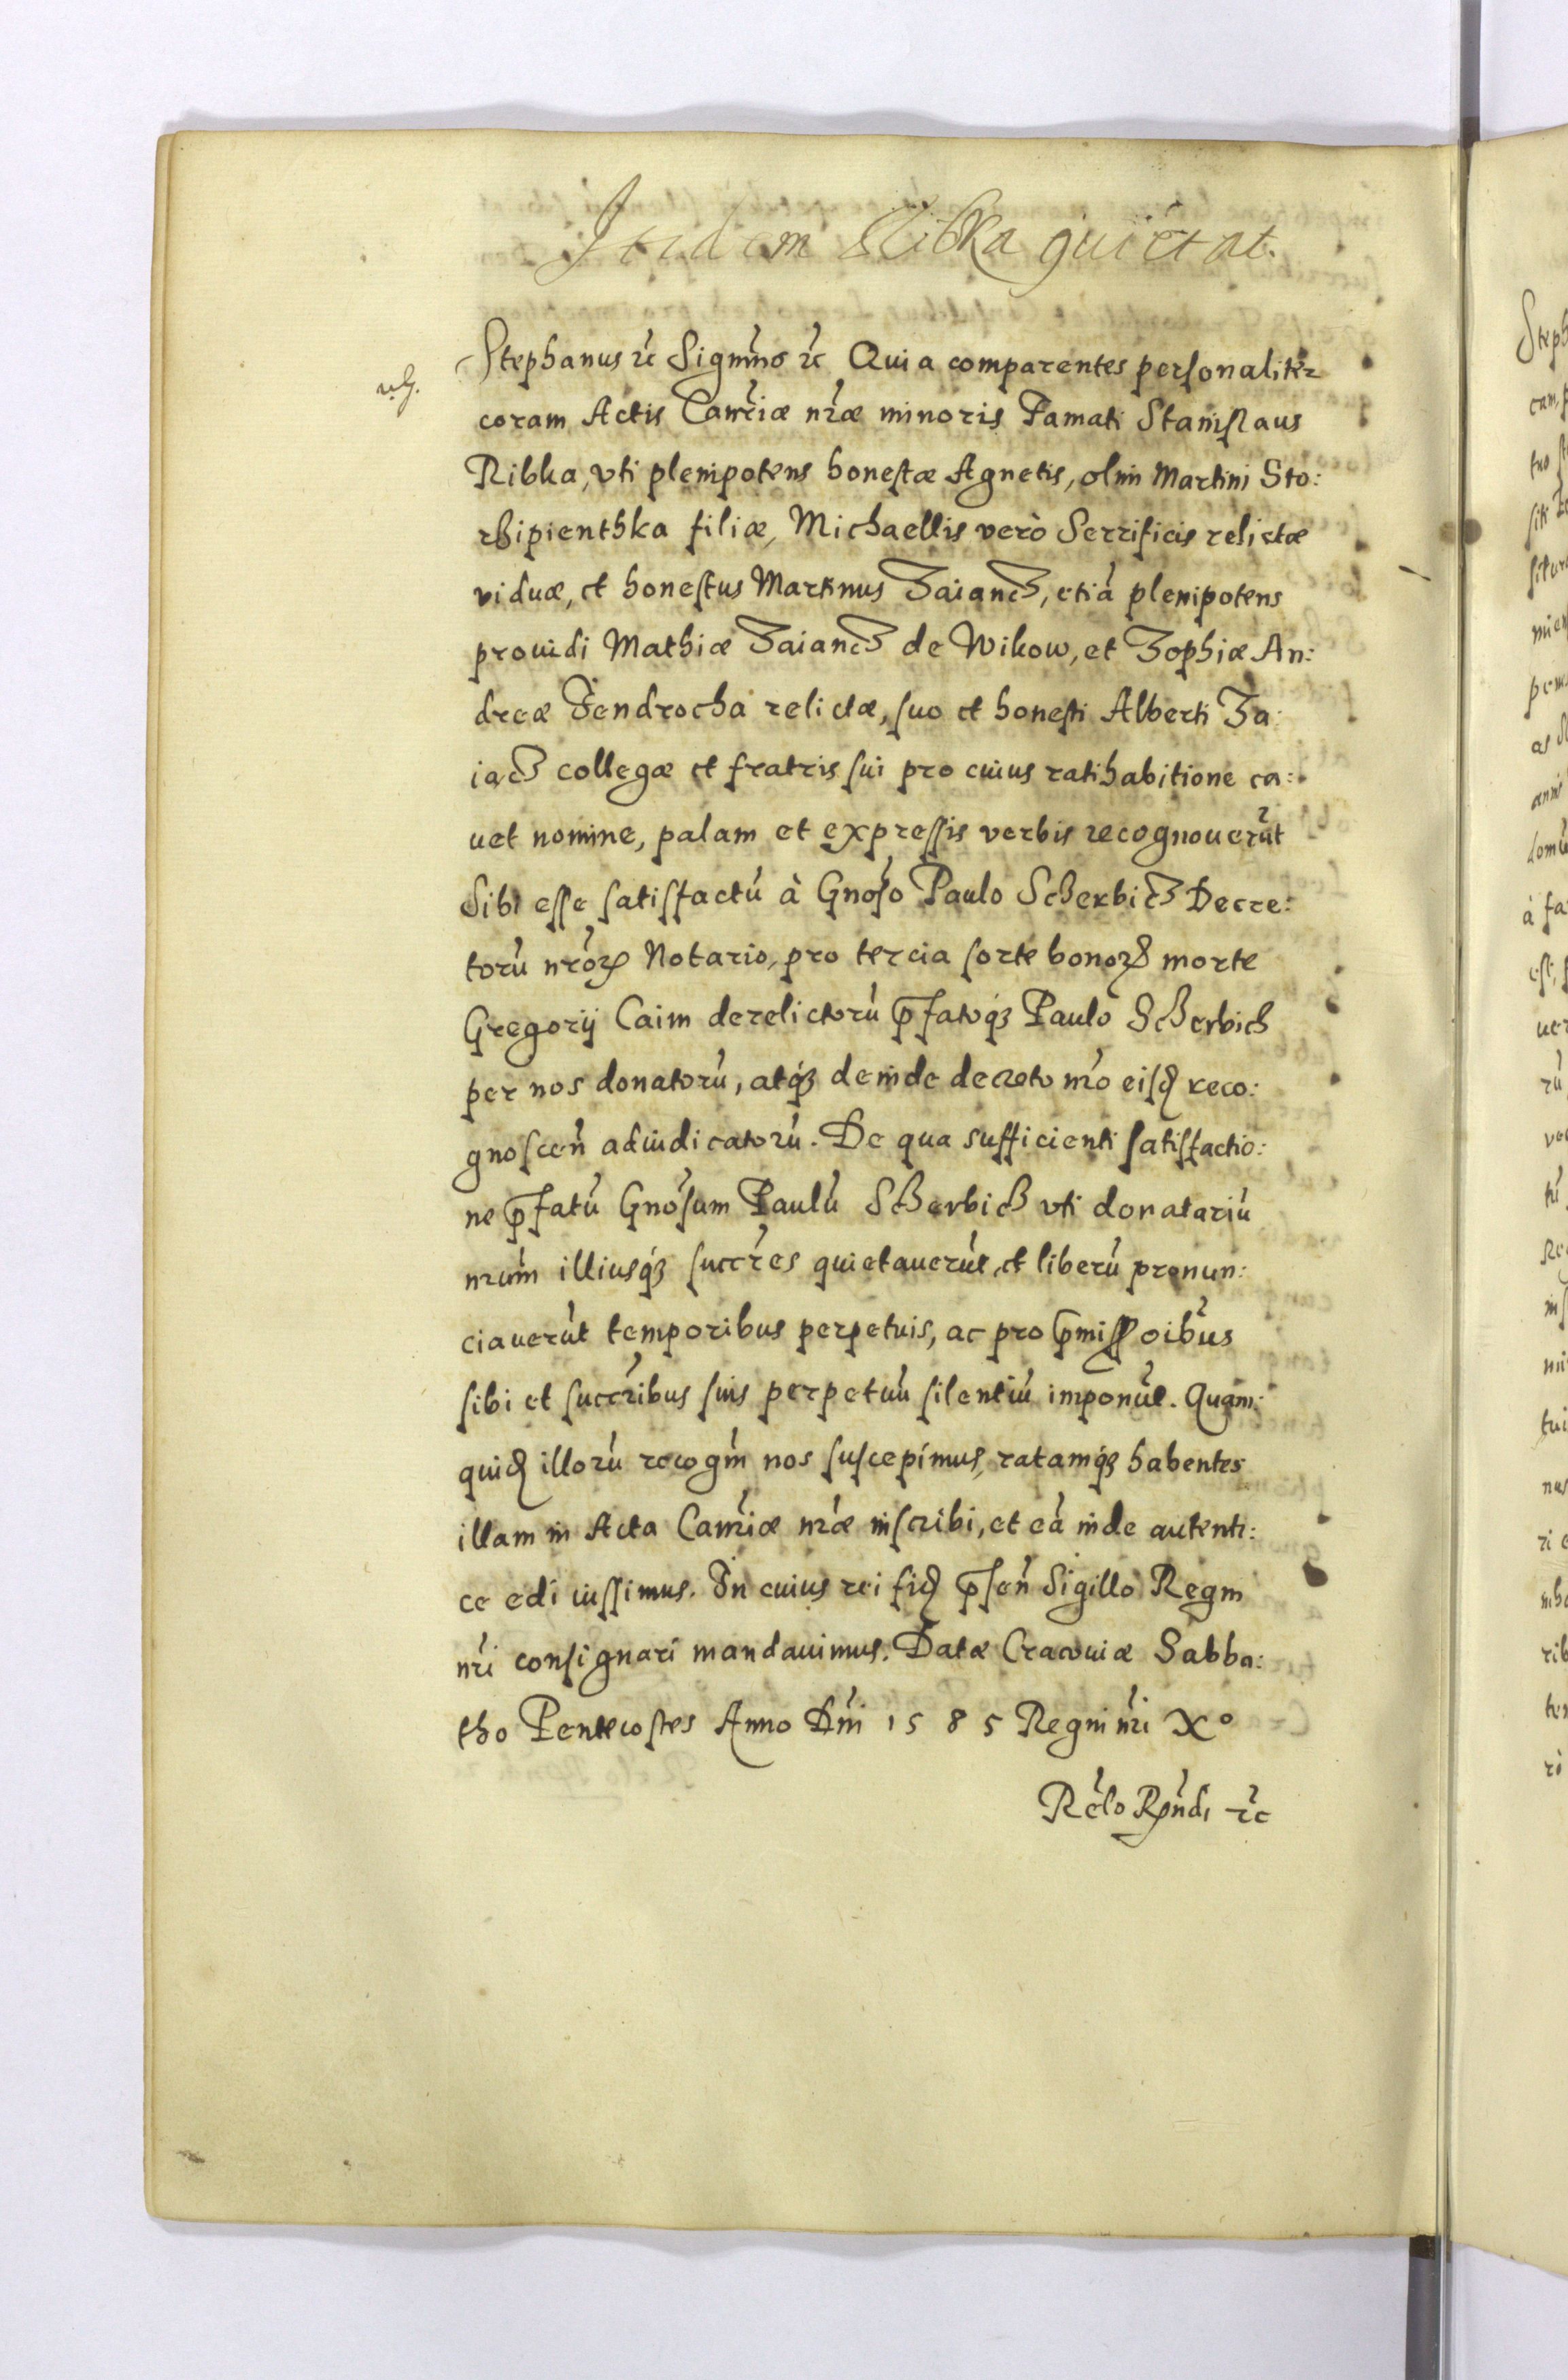 Itidem Ribka quietat.
Stephanus rc̃ Signm̃o rc̃ Quia comparentes personaliter
coram Actis Canc̃riæ nr̃æ minoris Famati Stanislaus
Ribka, vti plenipotens honestæ Agnetis, olim Martini Sto:
rhipienthka filiæ, Michaellis verò Serrificis relictæ
viduæ, et honestus Martinus Zaiancz, etiã plenipotens
prouidi Mathiæ Zaiancz de Wikow, et Zophiæ An:
dreæ Jendrocha relictæ, suo et honesti Alberti Za:
iacz collegæ et fratris sui pro cuius ratihabitione ca:
uet nomine, palam et expressis verbis recognouerũt
Sibi esse satisfactũ à Gnõso Paulo Sczerbicz Decre:
torũ nr̃oꝝ Notario, pro tercia sorte bonoꝝ morte
Gregorij Caim derelictorũ p̃fatoqꝫ Paulo Sczerbicz
per nos donatorũ, atqꝫ deinde decreto nr̃o eisd̃ reco:
gnoscen̄ adiudicatorũ. De qua sufficienti satisfactio:
ne p̃fatũ Gnõsum Paulũ Sczerbicz vti donatariũ
nr̃um illiusqꝫ succr̃es quietauerũt, et liberũ pronun:
ciauerũt temporibus perpetuis, ac pro p̃miss oĩbus
sibi et succr̃ibus suis perpetuũ silentiũ imponũt. Quam:
quid̃ illorũ recogm̃ nos suscepimus, ratamqꝫ habentes
illam in Acta Canc̃riæ nr̃æ inscribi, et eã inde autenti:
ce edi iussimus. In cuius rei fid̃ p̃sen̄ Sigillo Regni
nr̃i consignari mandauimus. Datæ Cracouiæ Sabba:
tho Pentecostes Anno Dm̃i 1585 Regni nr̃i Xº
Rẽlo Rṕñdi rc̃